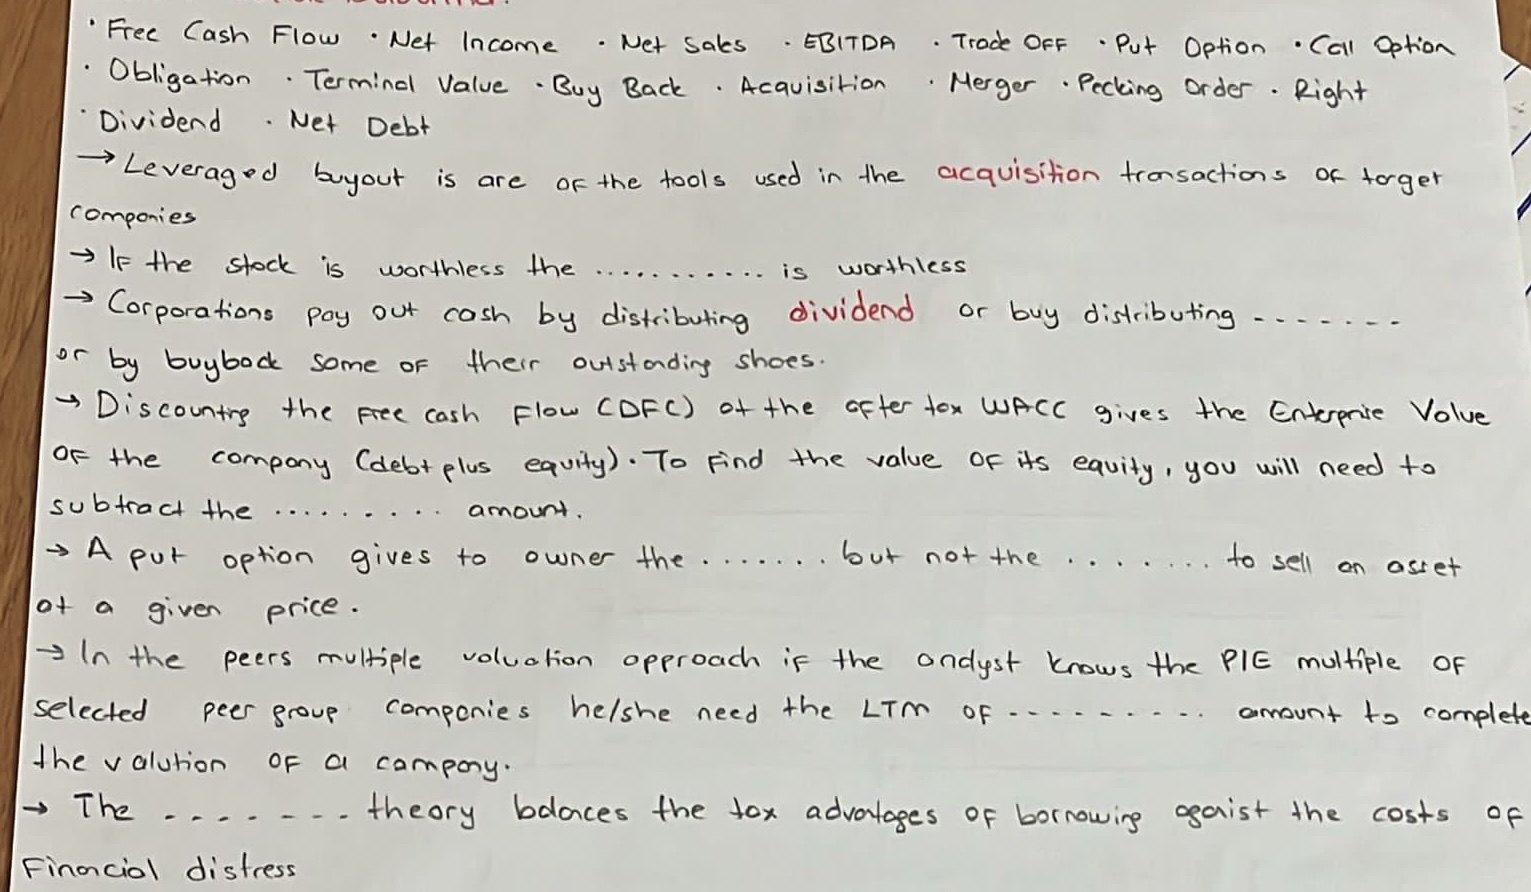 · Free Cash Flow · Net Income · Net Sales · EBITDA · Trade OFF · Put Option · Call Option
· Obligation · Terminal Value · Buy Back · Acquisition · Merger · Pecking Order · Right
· Dividend · Net Debt
→ Leveraged buyout is are of the tools used in the acquisition transactions of target
companies
→ If the stock is worthless the ........... is worthless
→ Corporations pay out cash by distributing dividend or buy distributing -------
or by buyback some of their outstanding shoes.
→ Discounting the Free cash Flow (DFC) at the after tax WACC gives the Enterprise Value
OF the company (debt plus equity). To Find the value OF its equity, you will need to
subtract the ......... amount.
→ A put option gives to owner the ....... but not the ........ to sell an asset
at a given price.
→ In the peers multiple valuation approach if the analyst knows the P/E multiple OF
selected peer group companies he/she need the LTM OF ---------- amount to complete
the valution OF a company.
→ The ------- theory balances the tax advantages OF borrowing agaist the costs OF
Financial distress